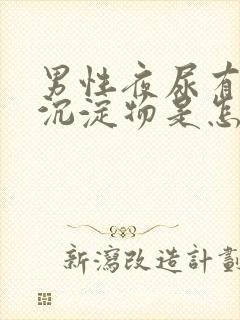 男性夜尿有
沉淀物是怎
新瀉改造計劃